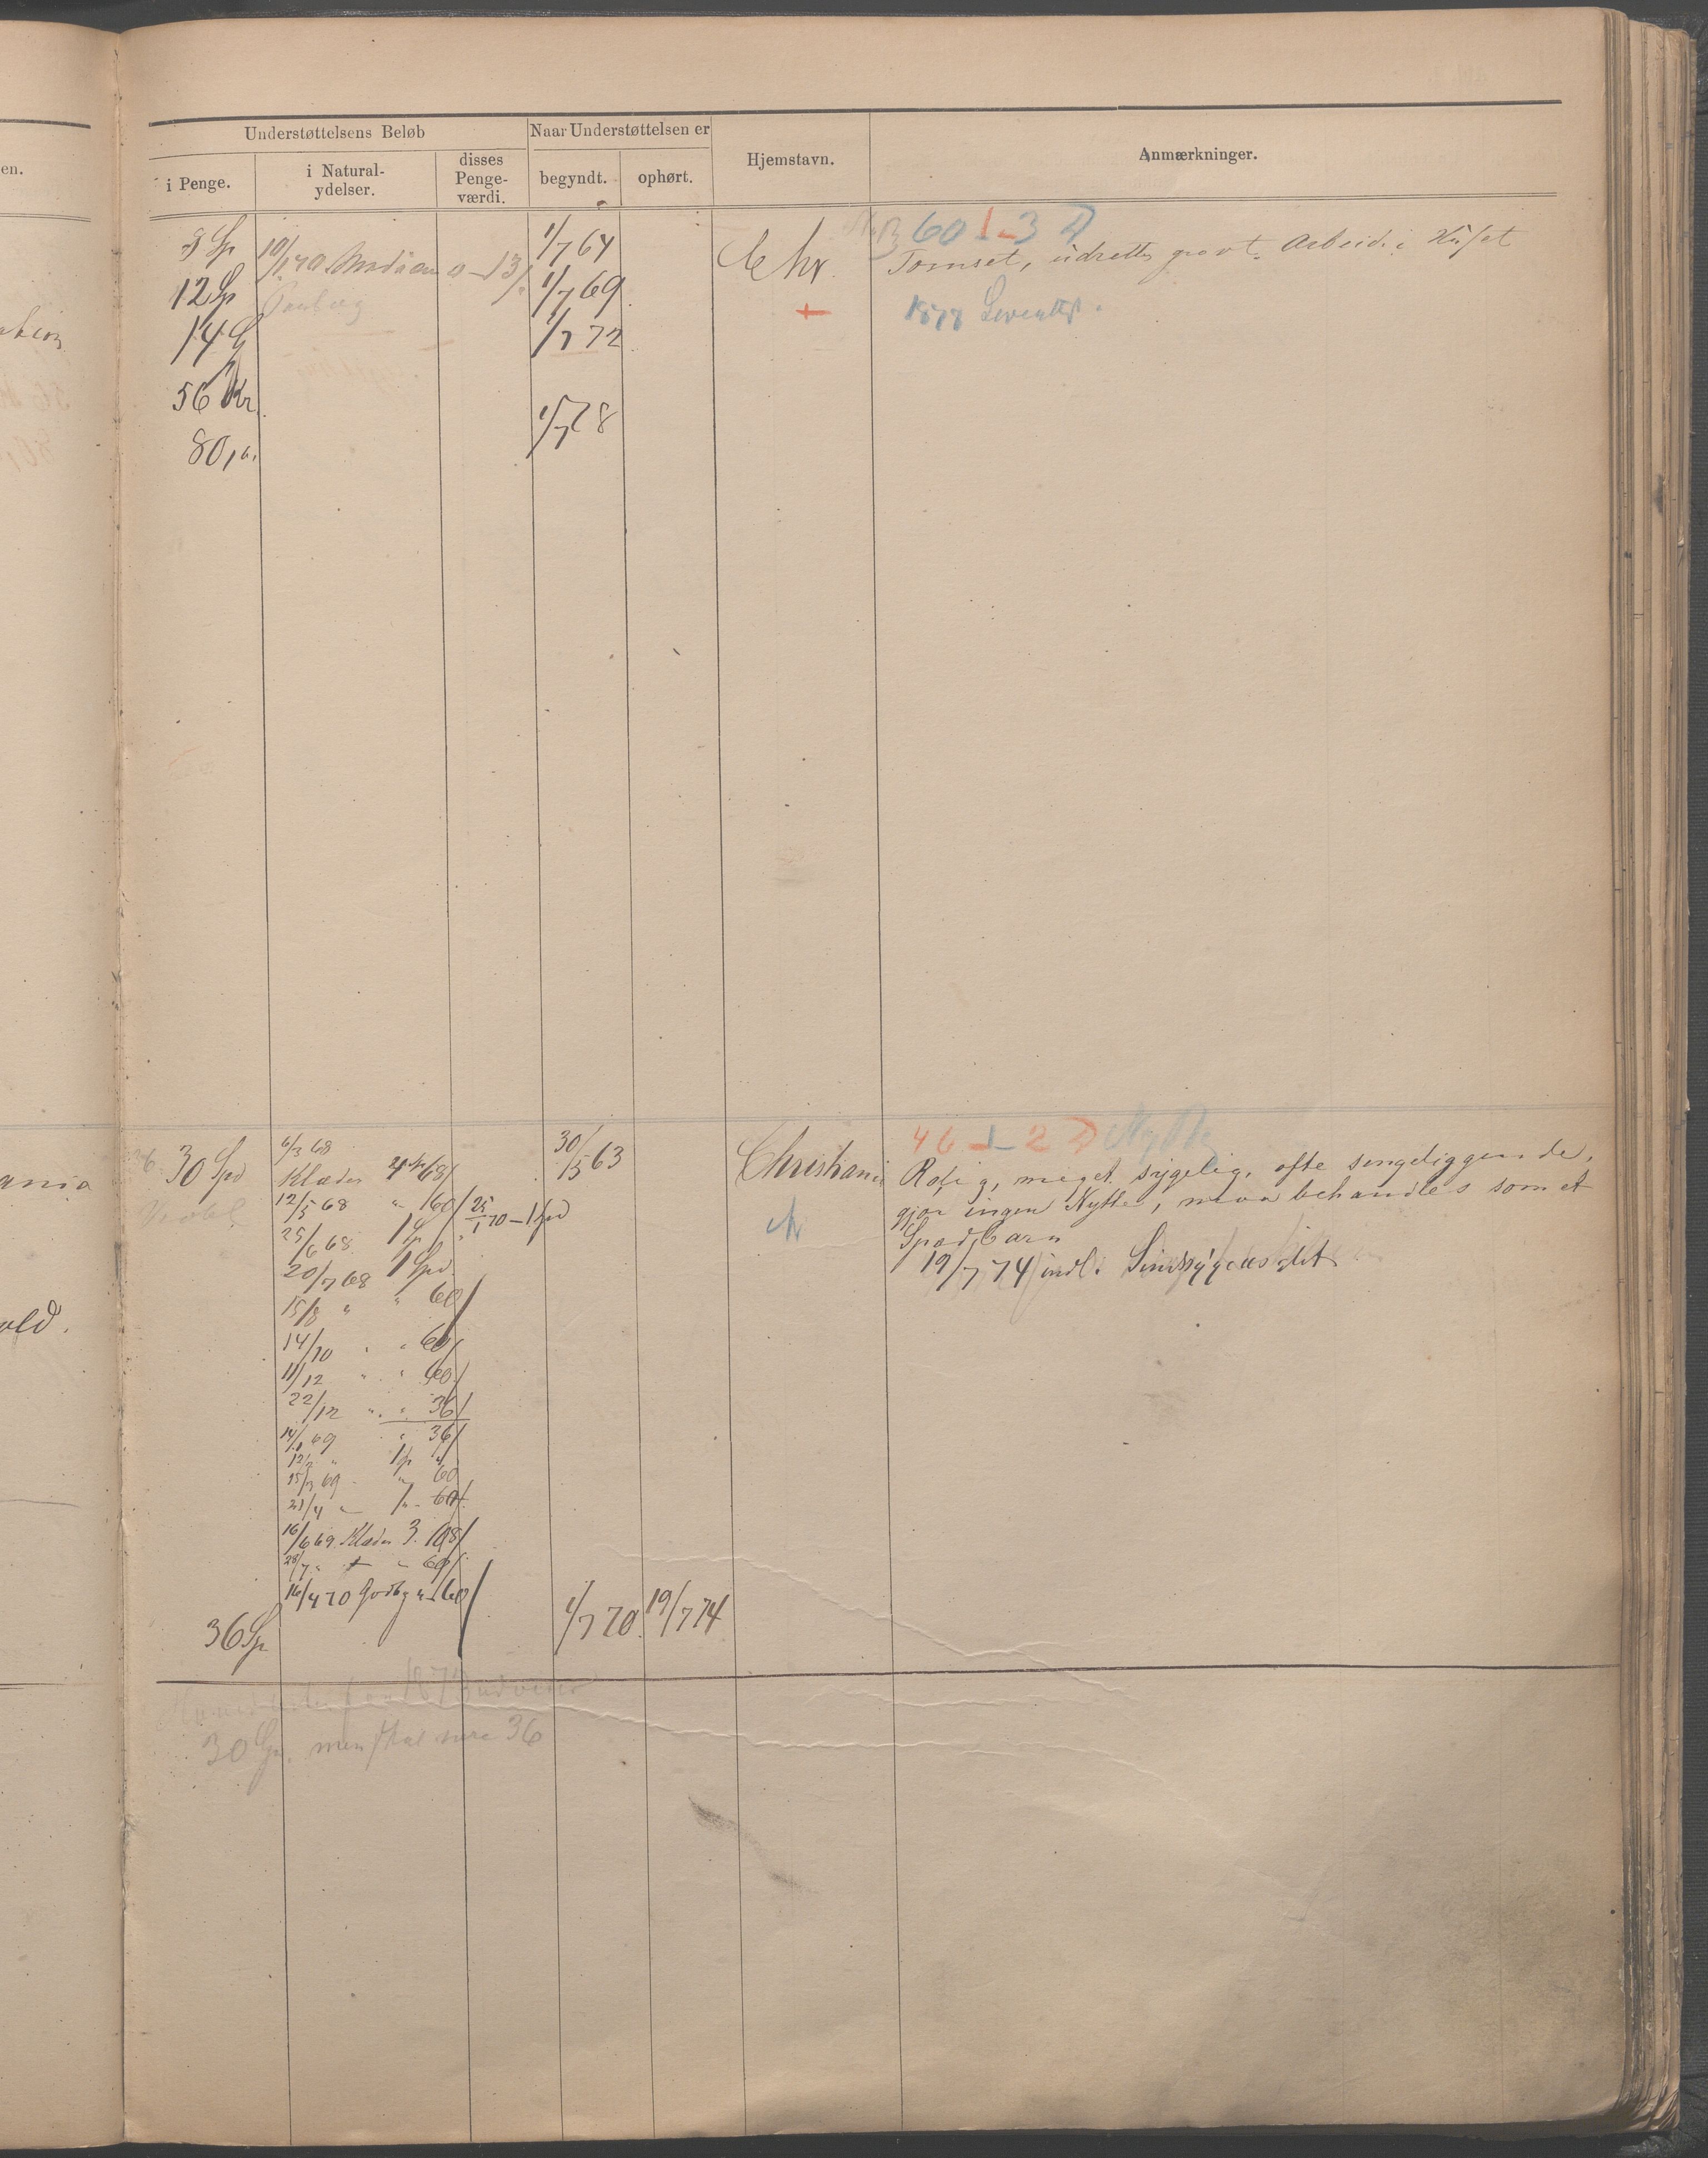 Understøttelsens Beløb
Naar Understøttelsen er
Hjemstavn.
Anmærkninger.
en.
i Penge.
i Natural-
ydelser.
disses
Penge-
værdi.
begyndt.
ophørt.
60 1 - 3 D
Sp 10/1 70 0-13/ 1/7 64 Chr. Tomset, udretter grovt Arbeid i Huset
12 Sp 1/7 69 +
14 Sp 1/7 72
1878
56 Kr.
80,00. 1/7 78
46 1 - 2 D Nytte
ania
30 Spd 6/3 68 30/5 63 Christiania Rolig, meget sygelig, ofte sengeliggende,
Klæder 68/
gjør ingen Nytte, maa behandles som et
12/5 68 " 60/ 25/1 70 - 1 Spd
Chr
Spædbarn
25/6 68 1 Sp
19/7 74 indl. Sindssygeasylet
20/7 68 1 Spd.
15/8 " " 60/
old.
14/10 " " 60/
11/12 " " 60/
22/12 " " 36/
14/1 69 " 36/
12/2 " 1 Sp "
15/3 69 " 60
21/4 " 60/
16/6 69. Klæder 3. 108/
28/7 " " 60/
16/4 70 60/
36 Sp 1/7 70. 19/7 74
30 Sp. men skal være 36